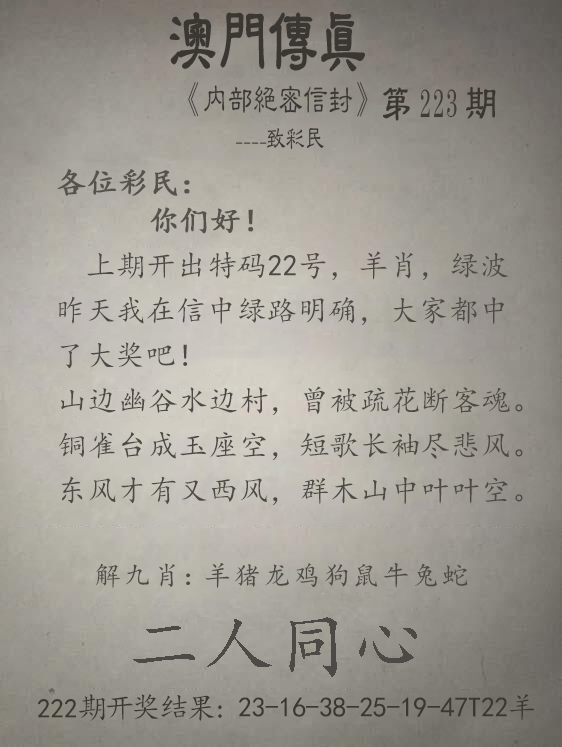 澳門傳眞
《内部絕密信封》第223期
----致彩民
各位彩民：
你们好！
上期开出特码22号，羊肖，绿波
昨天我在信中绿路明确，大家都中
了大奖吧！
山边幽谷水边村，曾被疏花断客魂。
铜雀台成玉座空，短歌长袖尽悲风。
东风才有又西风，群木山中叶叶空。
解九肖：羊猪龙鸡狗鼠牛兔蛇
二人同心
222期开奖结果：23-16-38-25-19-47T22羊